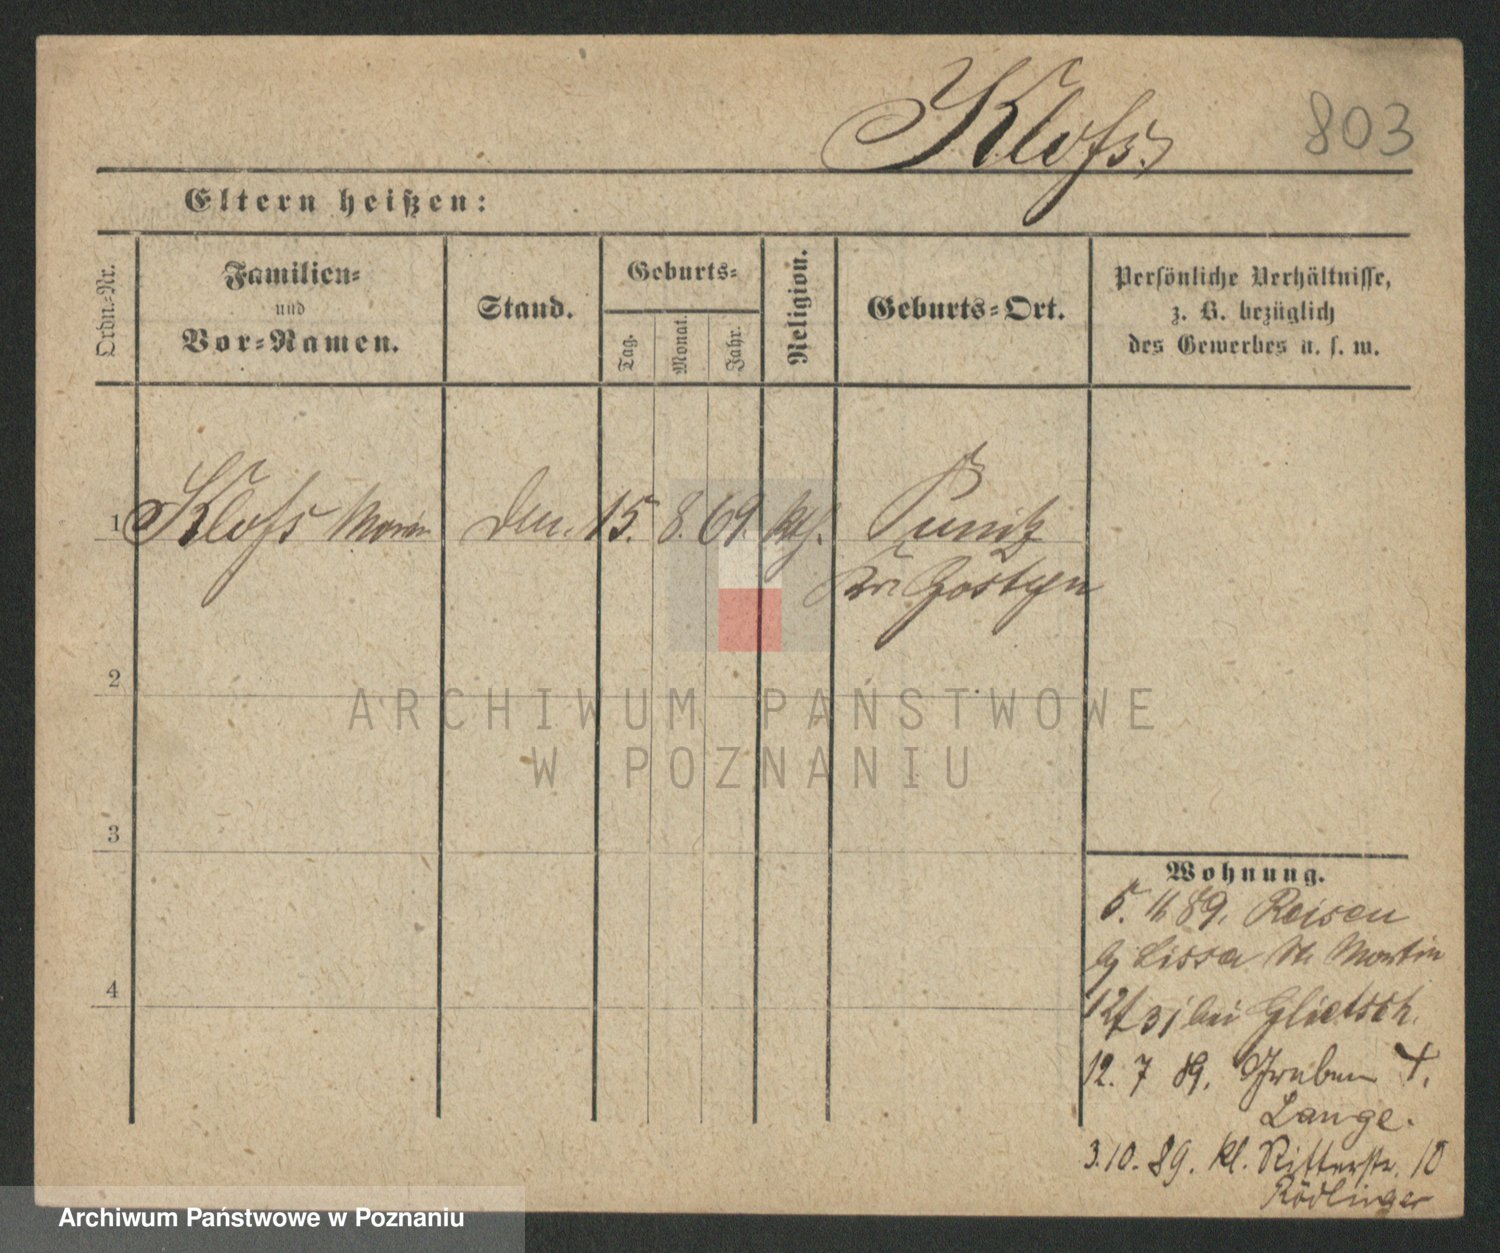 Kloß
803
Eltern heißen:
Ordn.-Nr.
Familien-
und
Vor-Namen.
Stand.
Geburts-
Tag.
Monat.
Jahr.
Religion.
Geburts-Ort.
Persönliche Verhältnisse,
z. B. bezüglich
des Gewerbes u. s. w.
1 Kloß Maria 15. 8. 69. kth. Punitz
Kr. Gostyn
2
ARCHIWUM PAŃSTWOWE
W POZNANIU
3
4
Wohnung.
5. 89. Reisen
Lissa St. Martin
bei Glietsch.
12. 7 89. Graben
Lange.
3.10.89. kl. Ritterstr. 10
Rödlinger
Archiwum Państwowe w Poznaniu